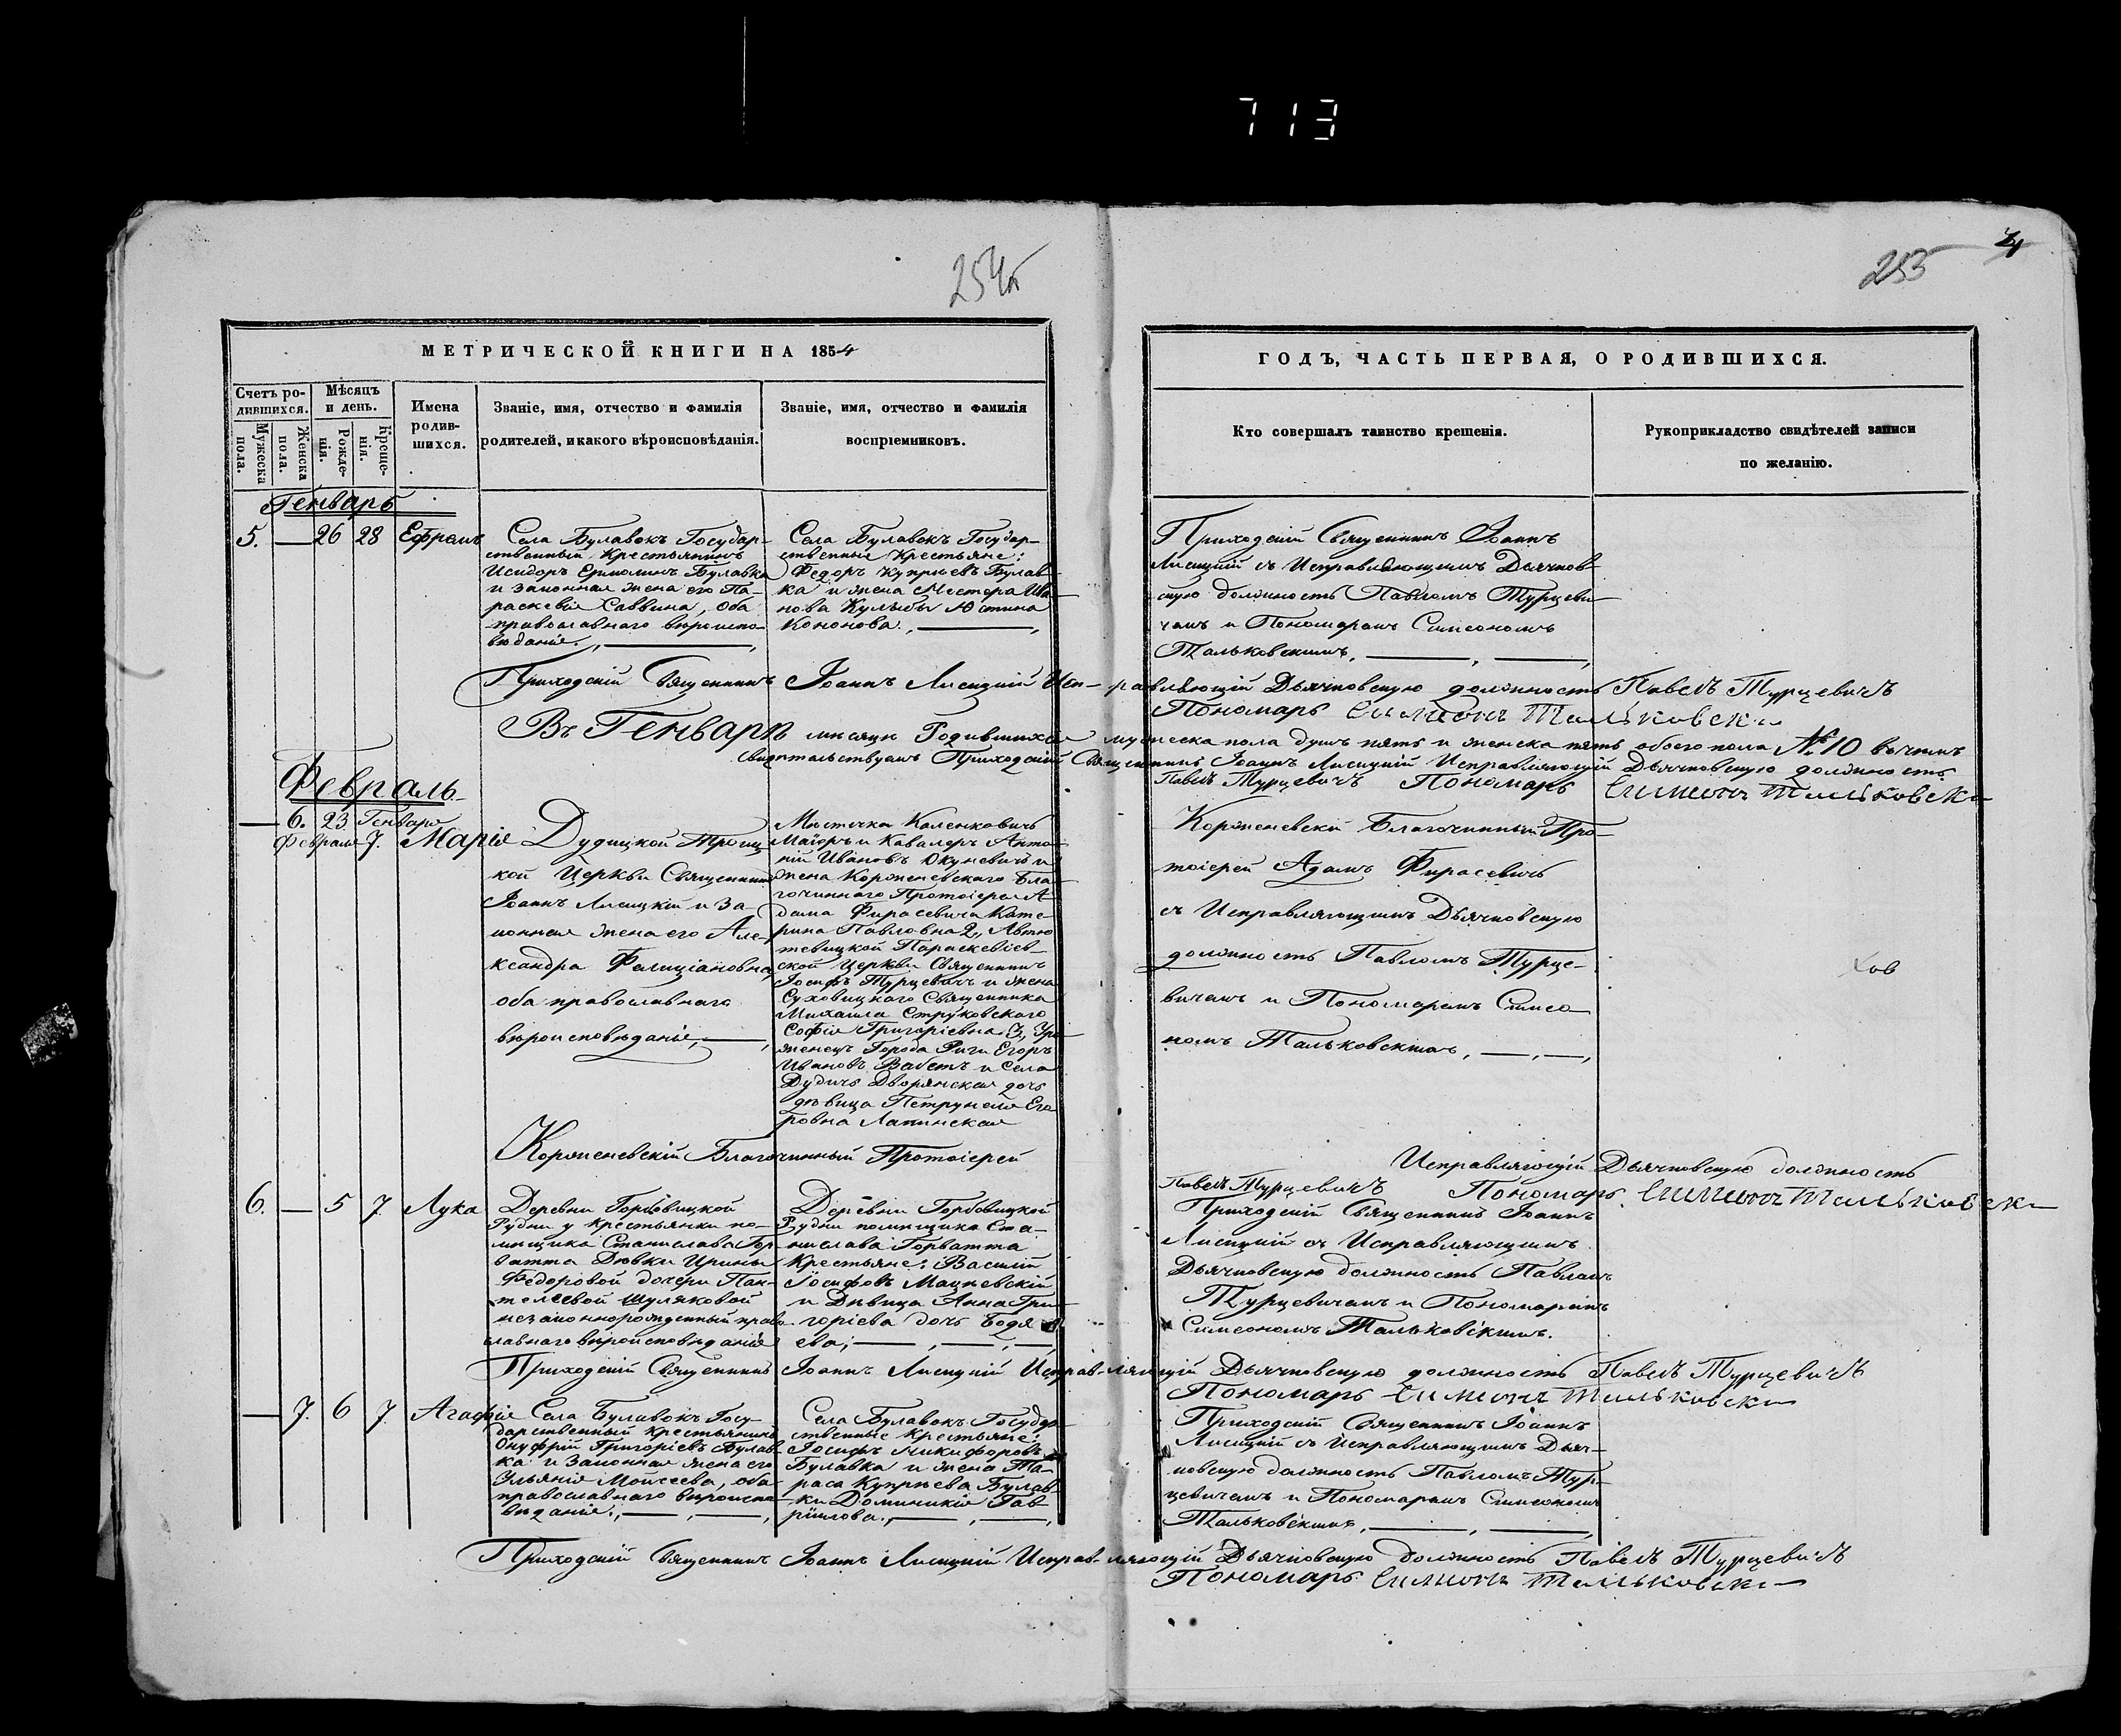 713
254б
4
255
МЕТРИЧЕСКОЙ КНИГИ НА 1854
ГОДЪ, ЧАСТЬ ПЕРВАЯ, О РОДИВШИХСЯ.
Счетъ ро-
дившихся.
Мужеска пола.
Женска пола.
Мѣсяцъ
и день.
Рожде-
нія.
Креще-
нія.
Имена
родив-
шихся.
Званіе, имя, отчество и фамилія
родителей, и какого вѣроисповѣданія.
Званіе, имя, отчество и фамилія
воспріемниковъ.
Кто совершалъ таинство крещенія.
Рукоприкладство свидѣтелей записи
по желанію.
Генварь
5. — 26 28 Ефремъ
Села Булавокъ Государ-
ственный Крестьянинъ
Исидоръ Ермолинъ Булавка
и законная жена его Па-
раскевія Саввина, оба
православнаго вѣроиспо-
вѣданія.
Села Булавокъ Государ-
ственные Крестьяне:
Федоръ Купріевъ Булав-
ка и жена Нестера Ива-
нова Кульбы Юстина
Кононова.
Приходскій Священникъ Іоаннъ
Лисицкій съ Исправляющимъ Дьячков-
скую должность Павломъ Турцеви-
чемъ и Пономаремъ Симеономъ
Тальковскимъ.
Приходскій Священникъ Іоаннъ Лисицкій Исправляющій Дьячковскую должность Павелъ Турцевичъ
Пономарь Симеонъ Тальковски
Въ Генварѣ мѣсяцѣ Родившихся мужеска пола душъ пять и женска пять обоего пола № 10 въ чемъ
свидѣтельствуемъ Приходскій Священникъ Іоаннъ Лисицкій Исправляющій Дьячковскую должность
Павелъ Турцевичъ Пономарь Симеонъ Тальковски
Февраль
— 6. 23 Генваря
Февраля 7. Марія
Дудицкой Троиц
кой Церкви Священникъ
Іоаннъ Лисицкій и за-
конная жена его Але-
ксандра Фелиціановна
оба православнаго
вѣроисповѣданія
Мѣстечка Каленковичъ
Маіоръ и Кавалеръ Анто-
ній Ивановъ Окуневичъ и
жена Корженевскаго Бла-
гочиннаго Протоіерея А-
дама Фирасевича Кате-
рина Павловна 2, Автю
тевицкой Параскевіев-
ской Церкви Священникъ
Іосифъ Турцевичъ и жена
Суховицкаго Священника
Михаила Струковскаго
Софія Григоріевна. 3, Уро-
женецъ Города Риги Егоръ
Ивановъ Вабстъ и Села
Дудичъ Дворянская дочь
дѣвица Петрунеля Его
ровна Лапинская
Корженевскій Благочинный Про-
тоіерей Адамъ Фирасевичъ
съ Исправляющимъ Дьячковскую
должность Павломъ Турце-
вичемъ и Пономаремъ Симео
номъ Тальковскимъ,
Корженевскій Благочинный Протоіерей
Исправляющій Дьячковскую должность
Павелъ Турцевичъ Пономарь Симеонъ Тальковски
6. — 5 7. Лука
Деревни Горбовицкой
Рудни у крестьянки по-
мѣщика Станислава Гор-
ватта Дѣвки Ирины
Федоровой дочери Пан-
телеевой Шуляковой
незаконнорожденный право
славнаго вѣроисповѣданія
Деревни Горбовицкой
Рудни помѣщика Ста-
нислава Горватта
Крестьяне: Василій
Іосифовъ Мацневскій
и Дѣвица Анна Гри-
горіева дочь Бодя
ева;
Приходскій Священникъ Іоаннъ
Лисицкій съ Исправляющимъ
Дьячковскую должность Павломъ
Турцевичемъ и Пономаремъ
Симеономъ Тальковскимъ.
Приходскій Священникъ Іоаннъ Лисицкій Исправляющій Дьячковскую должность Павелъ Турцевичъ
Пономарь Симеонъ Тальковски
— 7. 6 7. Агафія
Села Булавокъ Госу-
дарственный крестьянинъ
Онуфрій Григоріевъ Булав-
ка и Законная жена его
Ульянія Моисеева, оба
православнаго вѣроиспо-
вѣданія.
Села Булавокъ Государ-
ственные Крестьяне:
Іосифъ Никифоровъ
Булавка и жена Та-
раса Купріева Булав-
ки Доминикія Гав-
ріилова.
Приходскій Священникъ Іоаннъ
Лисицкій съ Исправляющимъ Дьяч-
ковскую должность Павломъ Тур-
цевичемъ и Пономаремъ Симеономъ
Тальковскимъ,
Приходскій Священникъ Іоаннъ Лисицкій Исправляющій Дьячковскую должность Павелъ Турцевичъ
Пономарь Симеонъ Тальковски